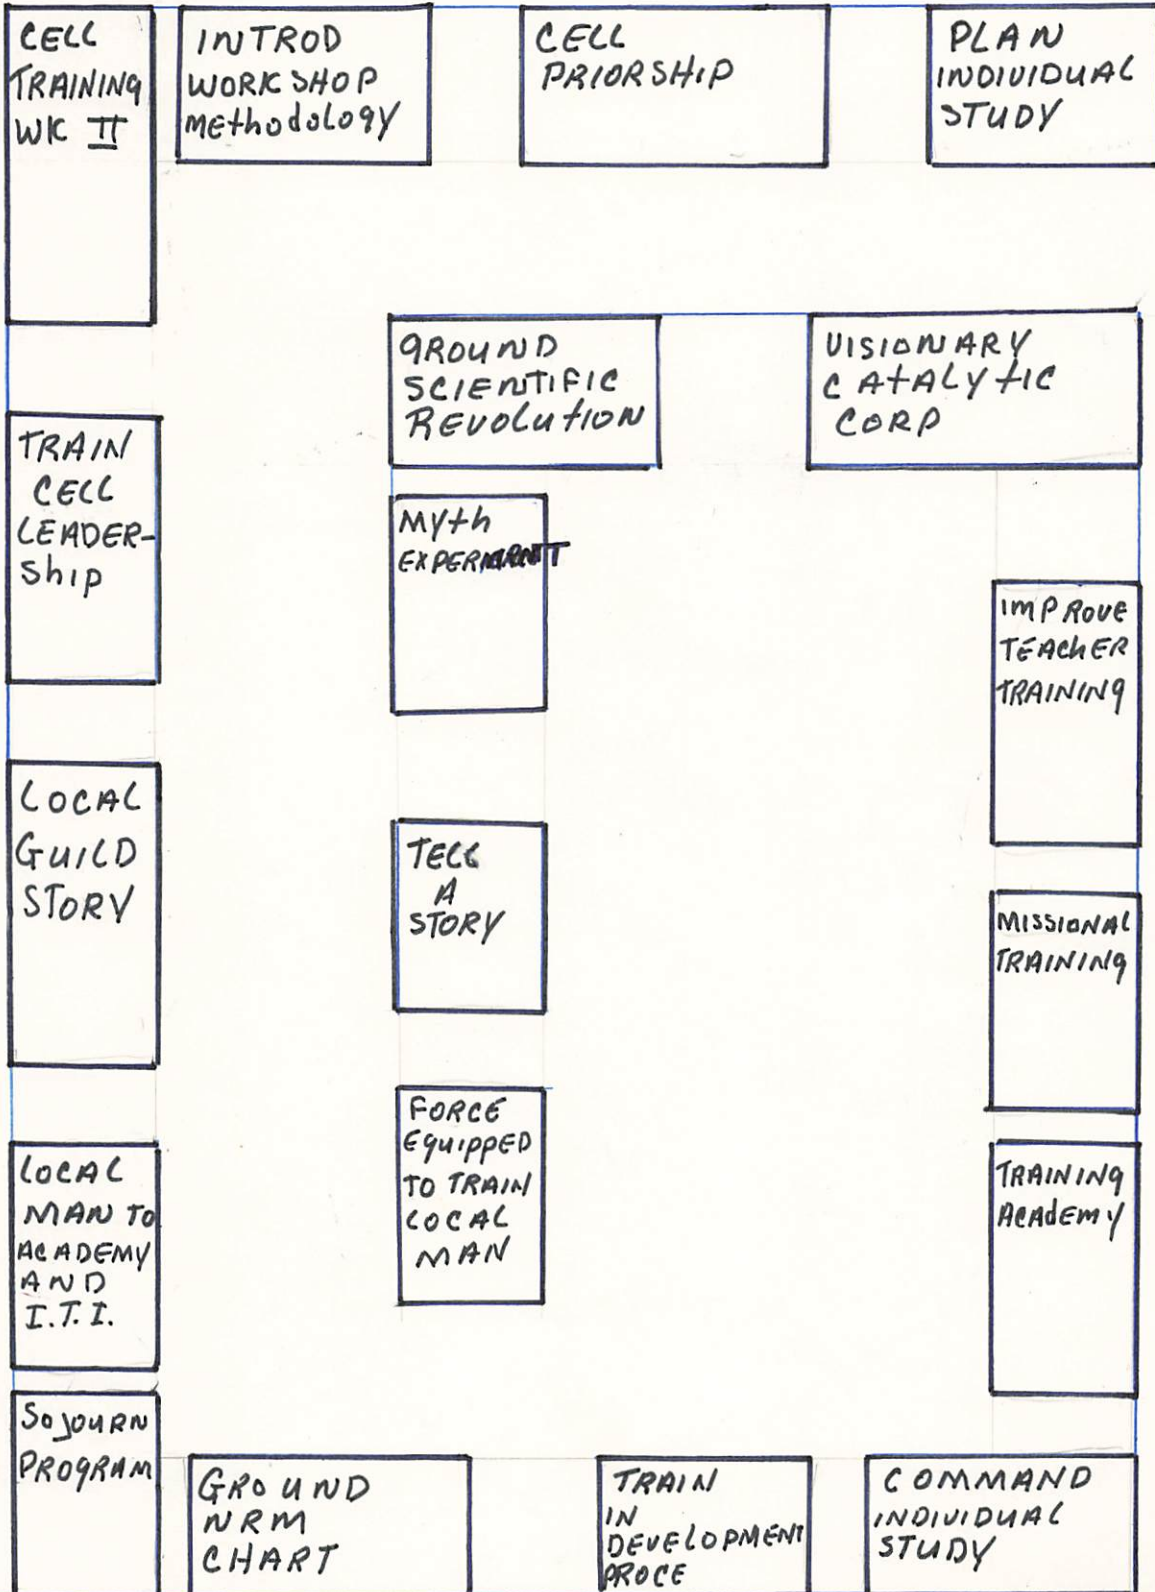 CELL
TRAINING
WK II
INTROD
WORKSHOP
MEthodology
CELL
PRIORSHIP
PLAN
INDIVIDUAL
STUDY
GROUND
SCIENTIFIC
REVOLUTION
VISIONARY
CATALYTIC
CORP
TRAIN
CELL
LEADER-
Ship
MYTH
IMPROVE
TEACHER
TRAINING
LOCAL
GUILD
STORY
TELL
A
STORY
MISSIONAL
TRAINING
FORCE
EQUIPPED
TO TRAIN
LOCAL
MAN
LOCAL
MAN TO
ACADEMY
AND
I.T.I.
TRAINING
ACADEMY
SOJOURN
PROGRAM
GROUND
NRM
CHART
TRAIN
IN
DEVELOPMENT
PROCE
COMMAND
INDIVIDUAL
STUDY